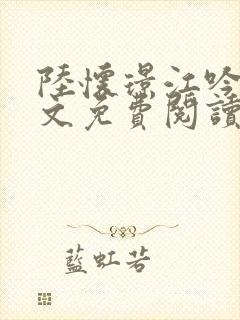 陸懷璟江吟
文免費閱讀
藍虹若